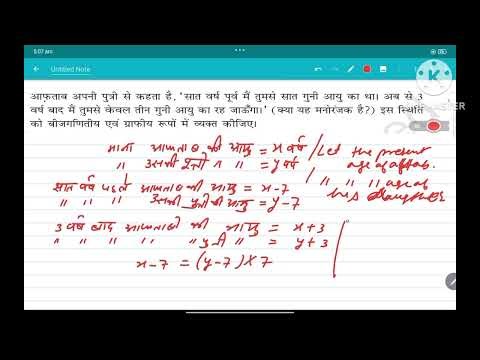 5:07 am
Untitled Note
आफ़ताब अपनी पुत्री से कहता है, 'सात वर्ष पूर्व मैं तुमसे सात गुनी आयु का था। अब से 3
वर्ष बाद मैं तुमसे केवल तीन गुनी आयु का रह जाऊँगा।' (क्या यह मनोरंजक है?) इस स्थिति
को बीजगणितीय एवं ग्राफीय रूपों में व्यक्त कीजिए।
माना आफताब की आयु = x वर्ष / Let the present
" उसकी पुत्री " " = y वर्ष age of aftab.
सात वर्ष पहले आफताब की आयु = x-7 / " " " age of
" " " उसकी पुत्री की आयु = y-7 his daughter
3 वर्ष बाद आफताब की आयु = x+3
" " " " " पुत्री " = y+3
x-7 = (y-7) X 7